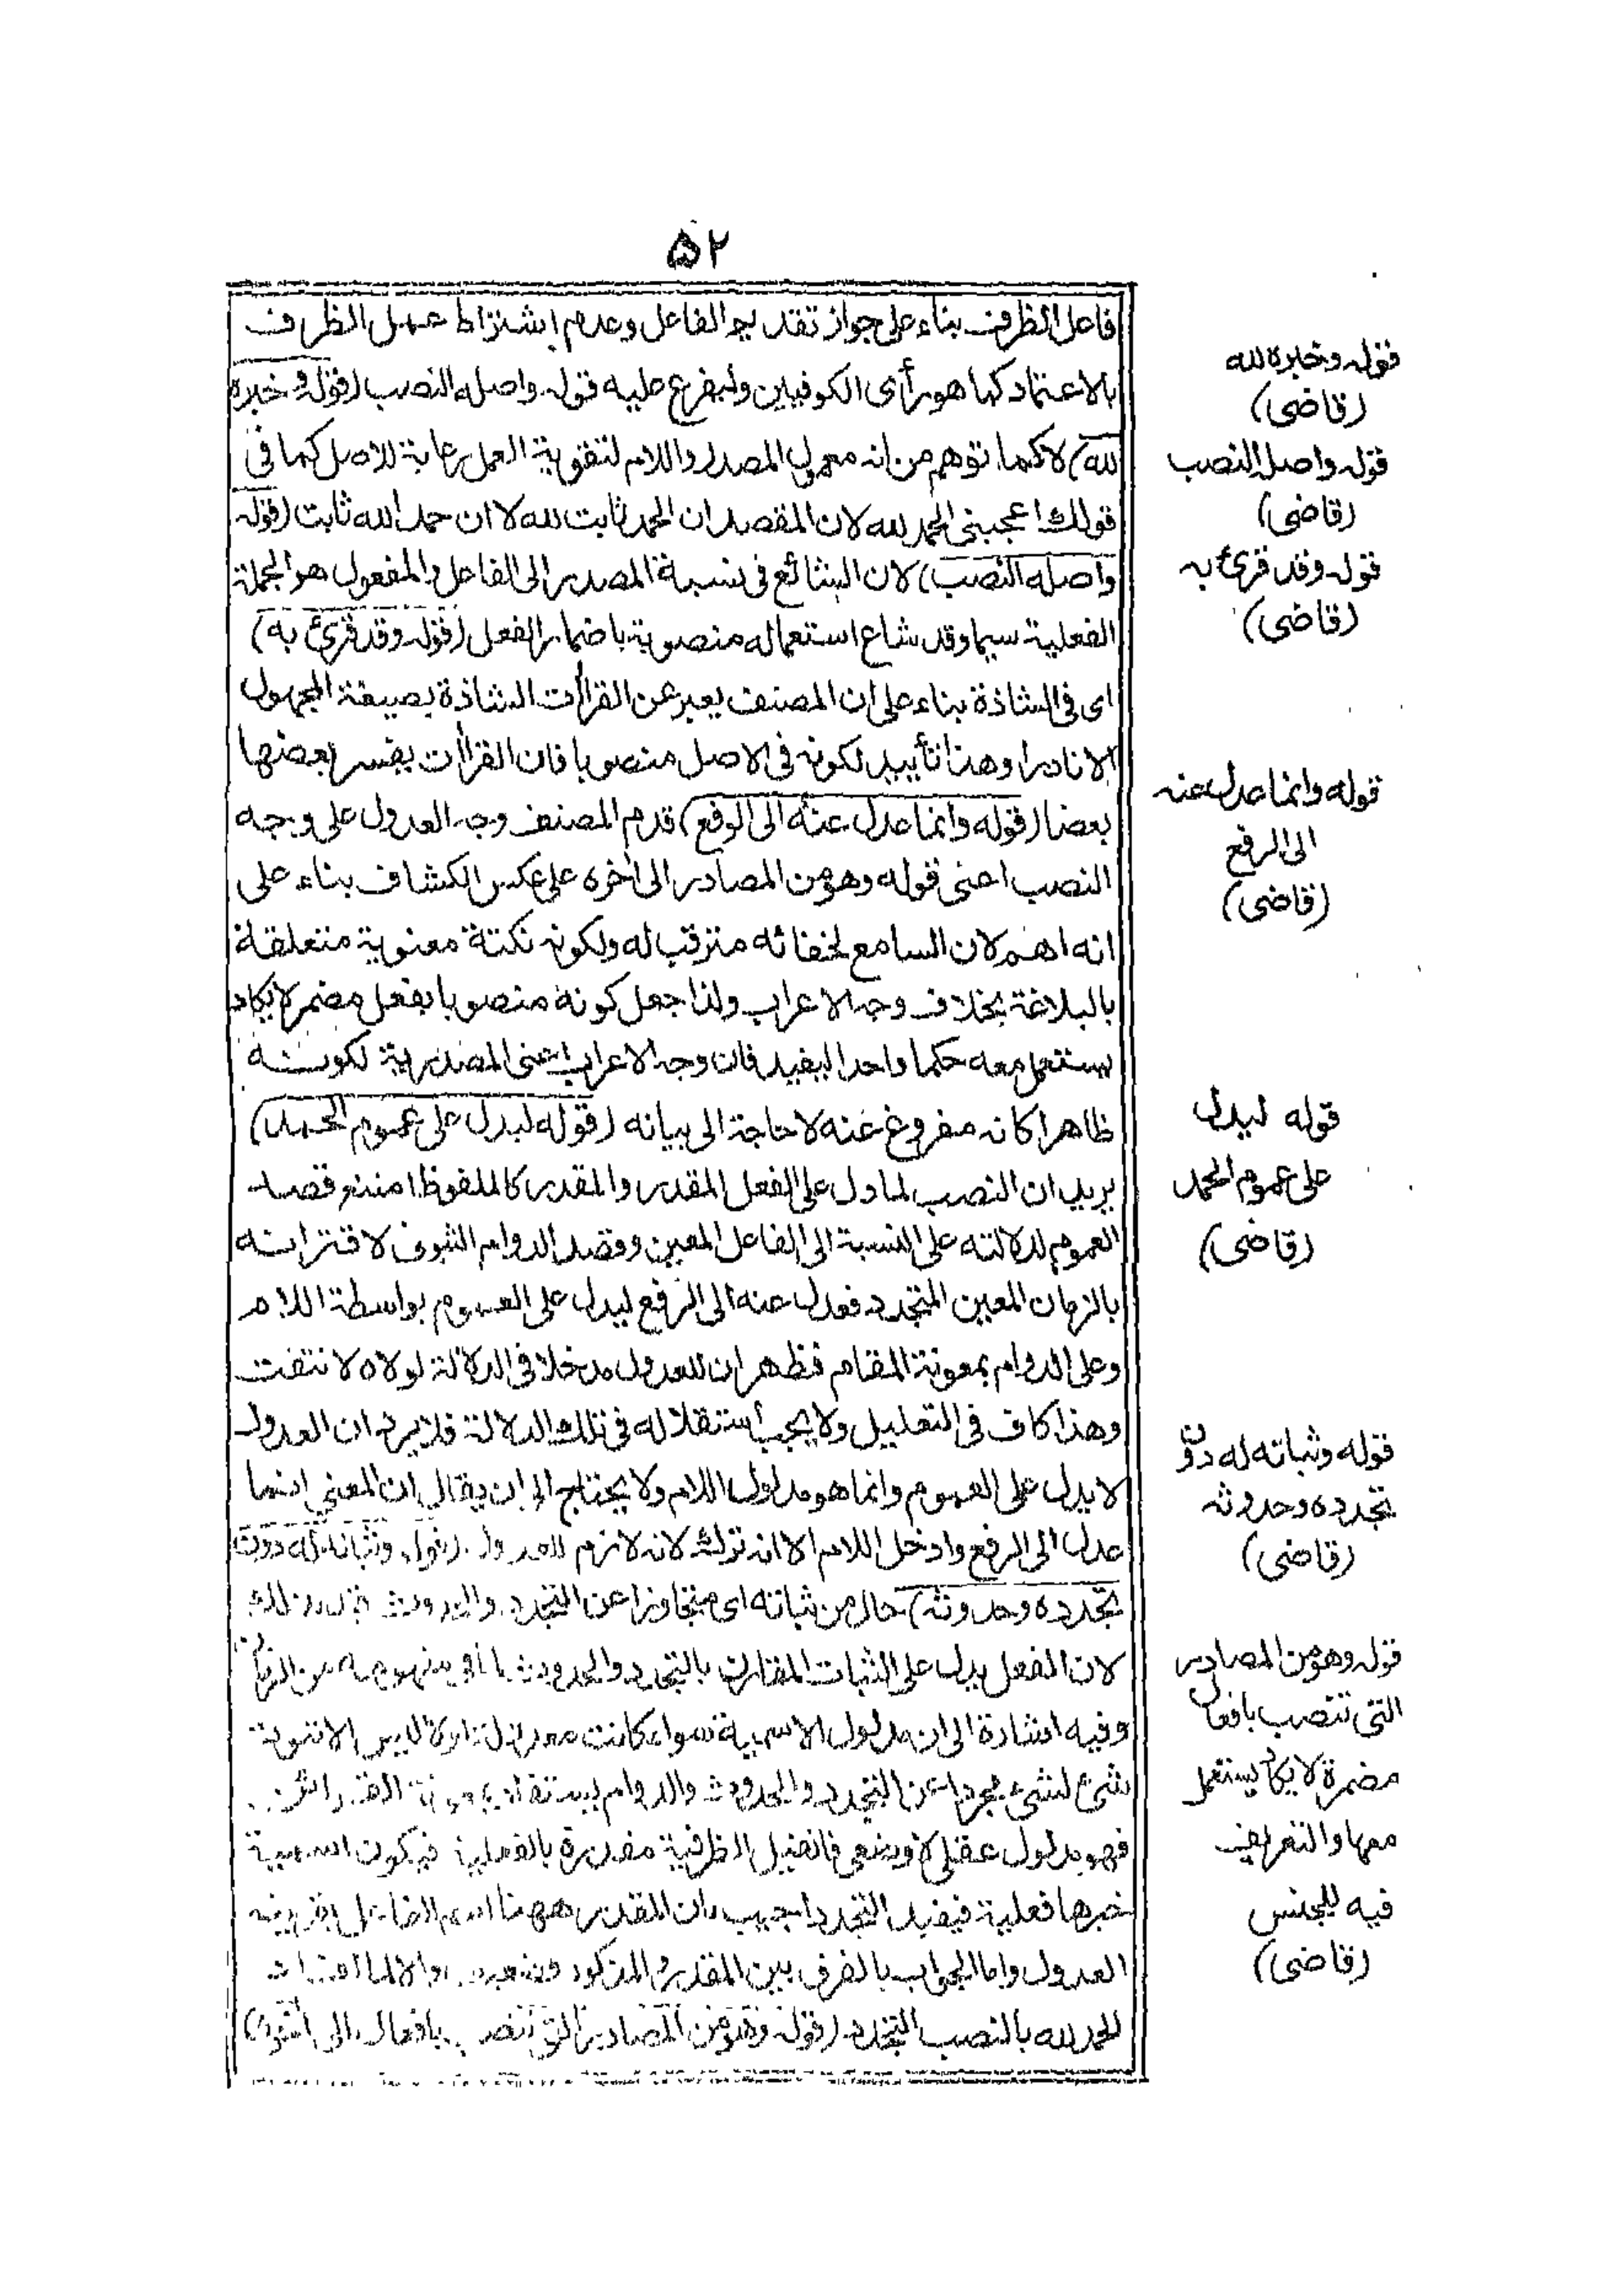 ٥٢
فاعل الظرف بناء على جواز تقديم الفاعل وعدم اشتراط عمل الظرف
بالاعتماد كما هو رأى الكوفيين وليفرع عليه قوله واصله النصب (قوله وخبره
لله) لا كما توهم من انه معمول المصدر واللام لتقوية العمل رعاية للاصل كما فى
قولك اعجبنى الحمد لله لان المقصد ان الحمد ثابت لله لا ان حمد الله ثابت (قوله
واصله النصب) لان الشائع فى نسبة المصدر الى الفاعل والمفعول هو الجملة
الفعلية سيما وقد شاع استعماله منصوبة باضمار الفعل (قوله وقد قرئ به)
اى فى الشاذة بناء على ان المصنف يعبر عن القراآت الشاذة بصيغة المجهول
الا نادرا وهذا تأييد لكونه فى الاصل منصوبا فان القراآت يفسر بعضها
بعضا (قوله وانما عدل عنه الى الرفع) قدم المصنف وجه العدول على وجه
النصب اعنى قوله وهو من المصادر الى آخره على عكس الكشاف بناء على
انه اهم لان السامع لخفائه مترقب له ولكونه نكتة معنوية متعلقة
بالبلاغة بخلاف وجه الاعراب ولذا جعل كونه منصوبا بفعل مضمر لا يكاد
يستعمل معه حكما واحدا ليفيد فان وجه الاعراب اعنى المصدرية لكونه
ظاهرا كانه مفروغ عنه لا حاجة الى بيانه (قوله ليدل على عموم الحمد)
يريد ان النصب لما دل على الفعل المقدر والمقدر كالملفوظ امتنع قصد
العموم لدلالته على النسبة الى الفاعل المعين وقصد الدوام الثبوتى لاقترانه
بالزمان المعين المتجدد فعدل عنه الى الرفع ليدل على العموم بواسطة اللام
وعلى الدوام بمعونة المقام فظهر ان للعدول مدخلا فى الدلالة لولاه لانتفت
وهذا كاف فى التعليل ولا يجب استقلاله فى تلك الدلالة فلا يرد ان العدول
لا يدل على العموم وانما هو مدلول اللام ولا يحتاج الى ان يقال ان المعنى انما
عدل الى الرفع وادخل اللام الا انه ترك لانه لازم للعدول (قوله وثباته له دون
تجدده وحدوثه) حال من ثباته اى متجاوزا عن التجدد والحدوث
لان الفعل يدل على الثبات المقارن بالتجدد والحدوث
وفيه اشارة الى ان مدلول الاسمية سواء كانت معدولة
شئ لشئ مجردا عن التجدد والحدوث والدوام يستفاد
فهو مدلول عقلى لا وضعى فان قيل الظرفية مقدرة بالفعلية فيكون اسمية
خبرها فعلية فيفيد التجدد اجيب بان المقدر ههنا اسم الفاعل بقرينة
العدول واما الجواب بالفرق بين المقدر والمذكور
الحمد لله بالنصب التجدد (قوله وهو من المصادر التى تنتصب بافعال الى آخره)
قوله وخبره لله
(قاضى)
قوله واصله النصب
(قاضى)
قوله وقد قرئ به
(قاضى)
قوله وانما عدل عنه
الى الرفع
(قاضى)
قوله ليدل
على عموم الحمد
(قاضى)
قوله وثباته له دون
تجدده وحدوثه
(قاضى)
قوله وهو من المصادر
التى تنتصب بافعال
مضمرة لا يكاد يستعمل
معها والتعريف
فيه للجنس
(قاضى)